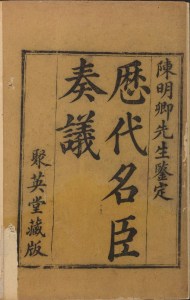 陳明卿先生鑒定
歷代名臣
奏議
聚英堂藏版